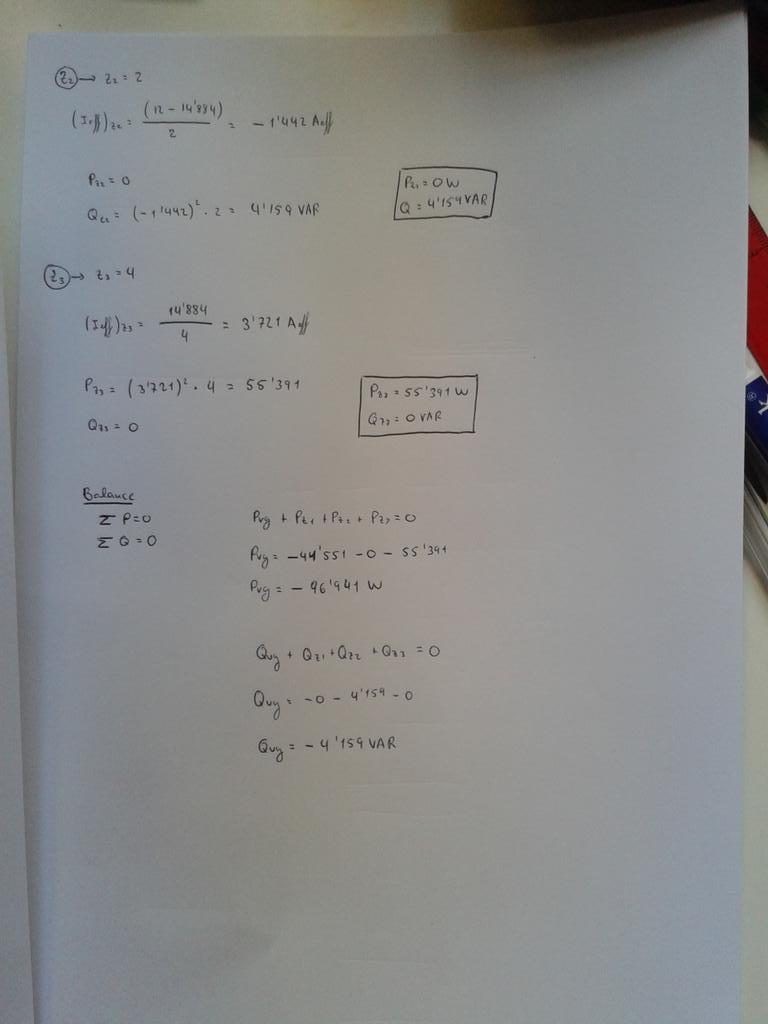 Z2 → Z2 = 2
(Ieff)Z2 = (12 - 14'884) / 2 = - 1'442 Aeff
PZ2 = 0
QZ2 = (-1'442)² · 2 = 4'159 VAR
PZ1 = 0 W
Q = 4'159 VAR
Z3 → Z3 = 4
(Ieff)Z3 = 14'884 / 4 = 3'721 Aeff
PZ3 = (3'721)² · 4 = 55'391
QZ3 = 0
PZ3 = 55'391 W
QZ3 = 0 VAR
Balance
Σ P=0
Σ Q = 0
Pvg + PZ1 + PZ2 + PZ3 = 0
Pvg = -41'551 - 0 - 55'391
Pvg = - 96'941 W
Qvg + QZ1 + QZ2 + QZ3 = 0
Qvg = -0 - 4'159 - 0
Qvg = - 4'159 VAR